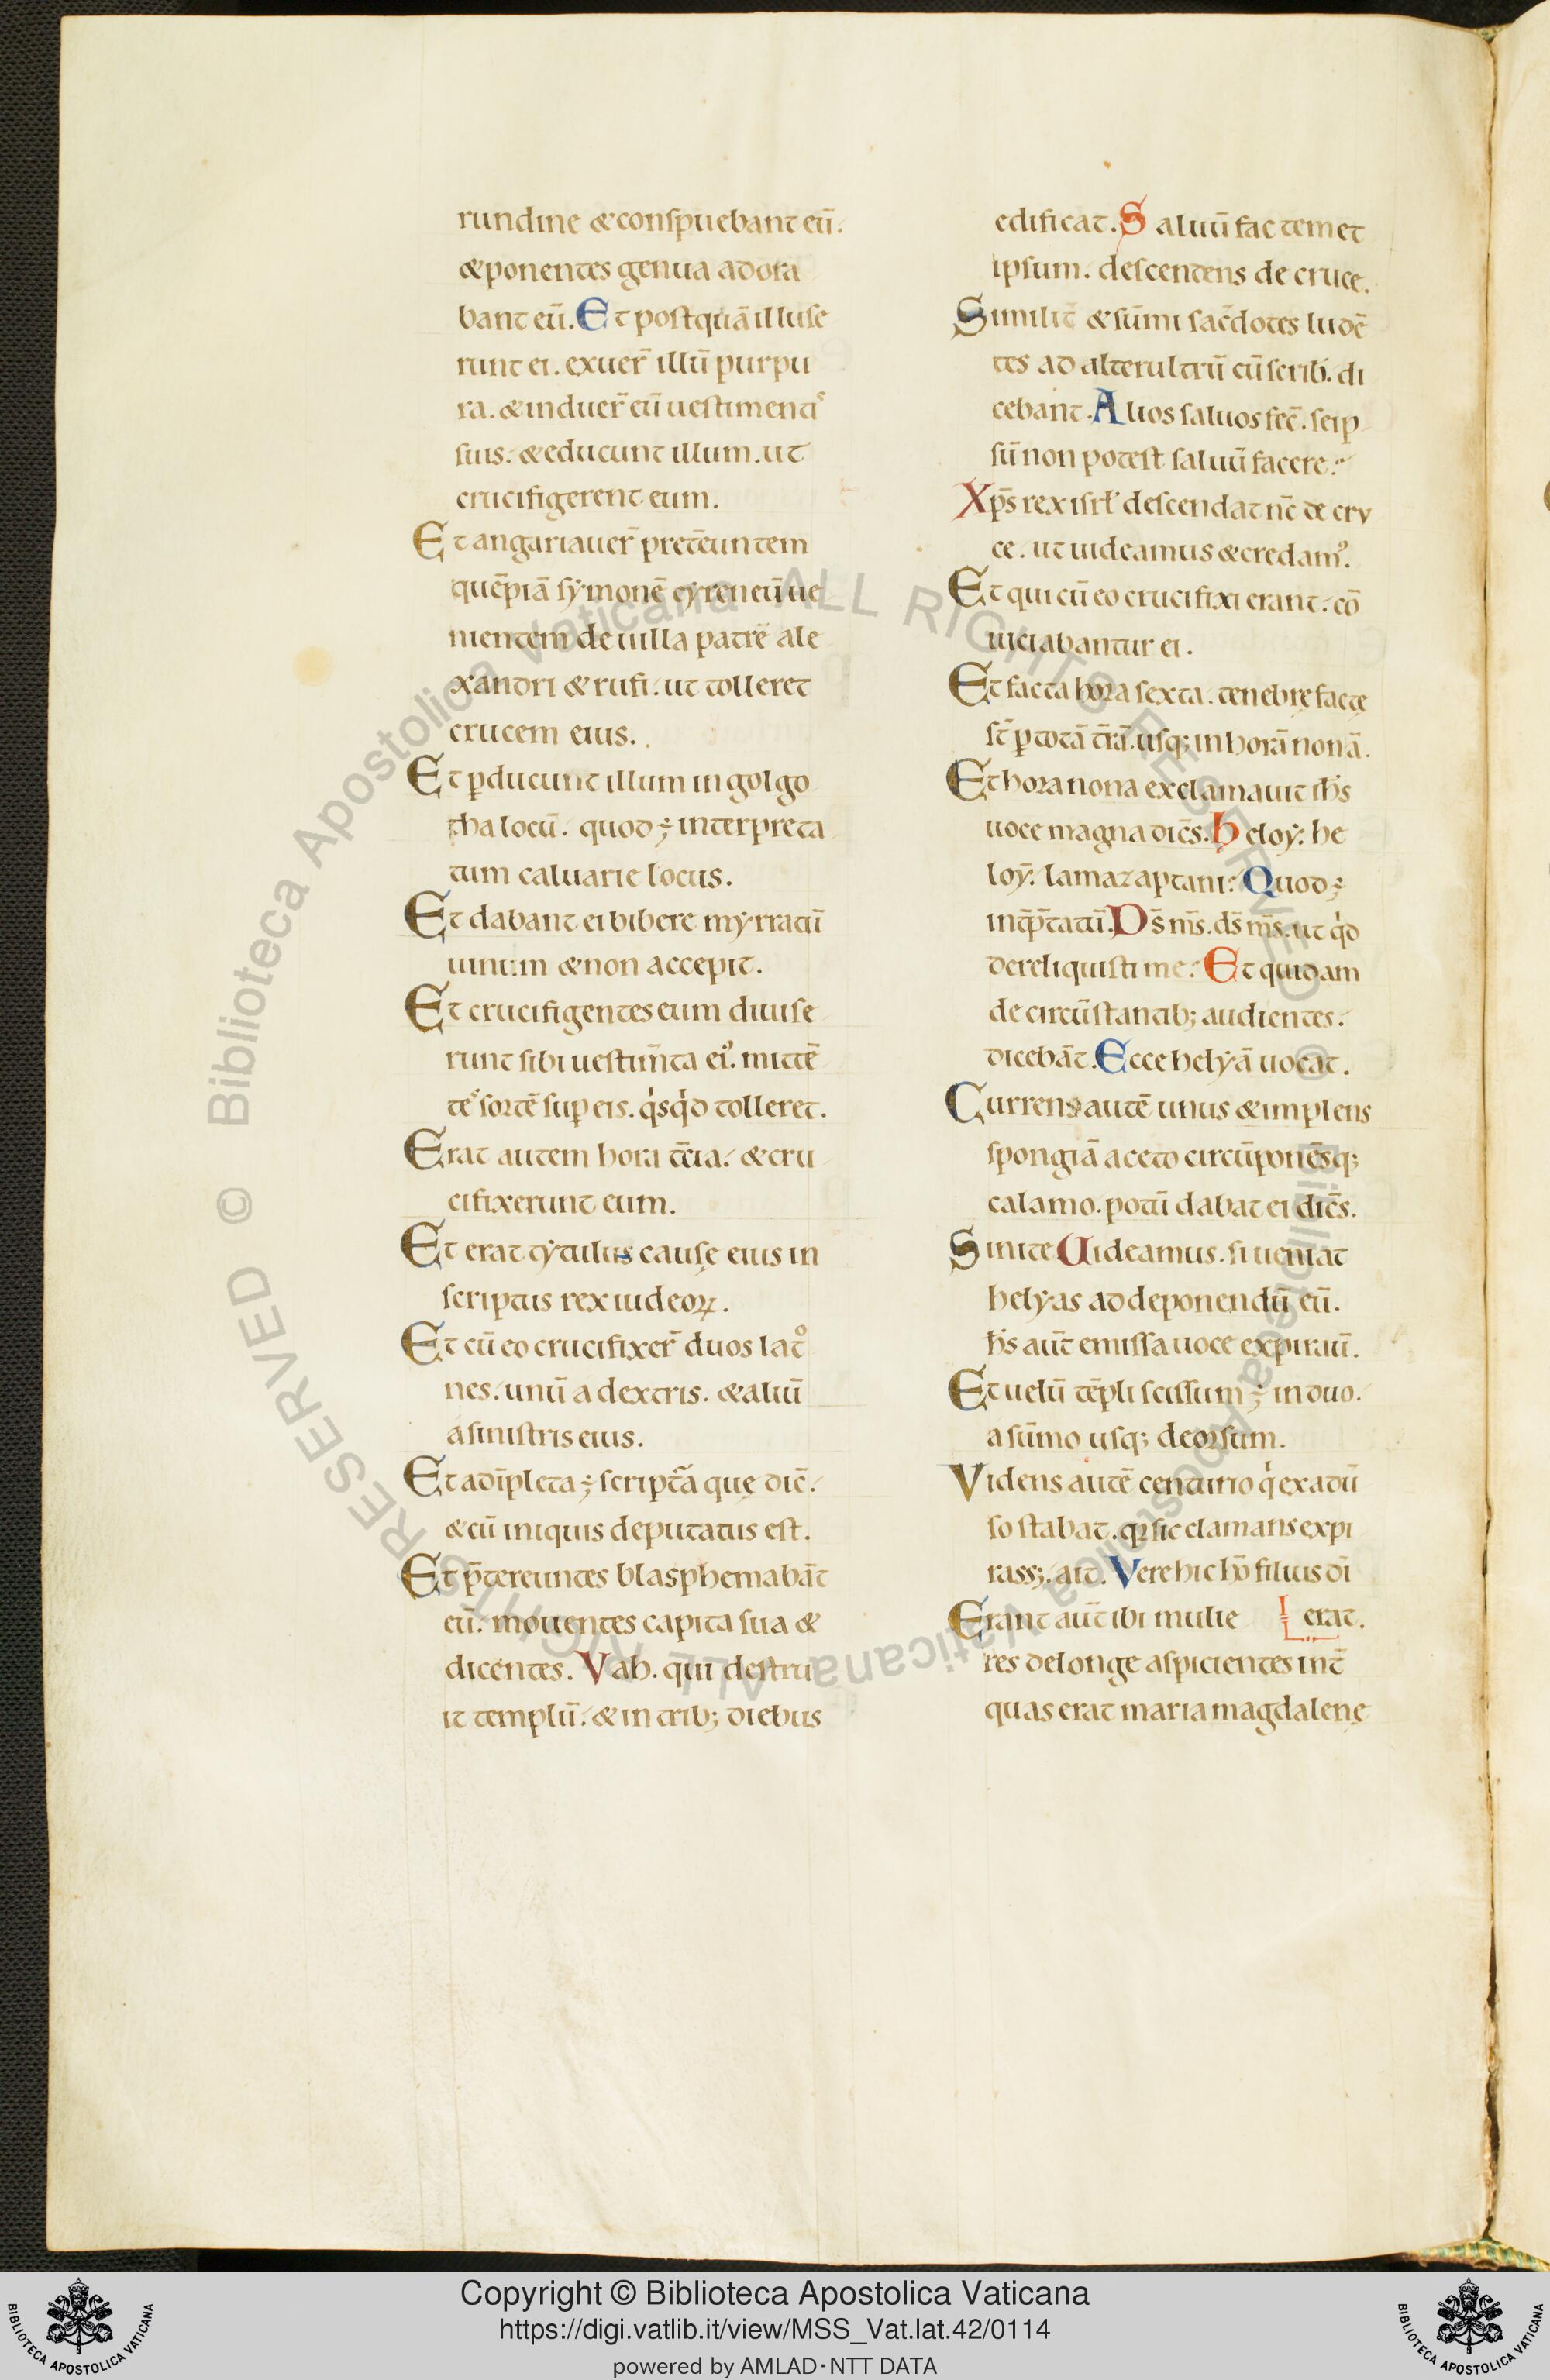 rundine & conspuebant eū.
& ponentes genua adora
bant eū. Et postquā illuse
runt ei. exuer̄ illū purpu
ra. & induer̄ eū uestimentis
suis. & educunt illum. ut
crucifigerent eum.
Et angariauer̄ pretēuntem
quēpiā sẏmonē cẏreneū ue
nientem de uilla patrē ale
xandri & rufi. ut tolleret
crucem eius.
Et ꝑducunt illum in golgo
tha locū. quod ÷ interpreta
tum caluarie locus.
Et dabant ei bibere mẏrratū
uinum & non accepit.
Et crucifigentes eum diuise
runt sibi uestim̄ta eiꝰ. mittē
tes sortē suꝑ eis. qͥsqͥd tolleret.
Erat autem hora t̄cia. & cru
cifixerunt eum.
Et erat tẏtulus causę eius in
scriptus rex iudeoꝝ.
Et cū eo crucifixer̄ duos latͦ
nes. unū a dextris. & aliū
a sinistris eius.
Et adīpleta ÷ scriptᷓa quę dic̄.
& cū iniquis deputatus est.
Et p̄tereuntes blasphemabāt
eū. mouentes capita sua &
dicentes. Vah. qui destru
it templū. & in trib; diebus
edificat. Saluū fac temet
ipsum. descendens de cruce.
Similit̄ & sūmi sac̄dotes ludē
tes ad alterultrū cū scrib. di
cebant. Alios saluos fec̄. seip
sū non potest saluū facere.
Xp̄s rex isrł descendat nc̄ de cru
ce. ut uideamus & credamꝰ.
Et qui cū eo crucifixi erant. cō
uiciabantur ei.
Et facta hora sexta. tenebrę factę
st̄ ꝑ totā t̄rā. usq; in horā nonā.
Et hora nona exclamauit ih̄s
uoce magna dic̄s. Heloẏ. he
loẏ. lamazaptani. Quod ÷
int̄p̄tatū. Ds̄ m̄s. ds̄ m̄s. ut qͥd
dereliquisti me. Et quidam
de circūstantib; audientes.
dicebāt. Ecce helẏā uocat.
Currens autē unus & implens
spongiā aceto circūponēsq;
calamo. potū dabat ei dic̄s.
Sinite Uideamus. si ueniat
helẏas ad deponendū eū.
ih̄s aut̄ emissa uoce expirau̅.
Et uelū tēpli scissum ÷ in duo.
a sūmo usq; deorsum.
Videns autē centurio qͥ exadu̅
so stabat. qꝛ sic clamans expi
rass;. ait. Vere hic hō filius dī
erat.
Erant aut̄ ibi mulie
res delonge aspicientes int̄
quas erat maria magdalenę
Copyright © Biblioteca Apostolica Vaticana
https://digi.vatlib.it/view/MSS_Vat.lat.42/0114
powered by AMLAD·NTT DATA
BIBLIOTECA APOSTOLICA VATICANA
BIBLIOTECA APOSTOLICA VATICANA
© Biblioteca Apostolica Vaticana ALL RIGHTS RESERVED
© Biblioteca Apostolica Vaticana ALL RIGHTS RESERVED